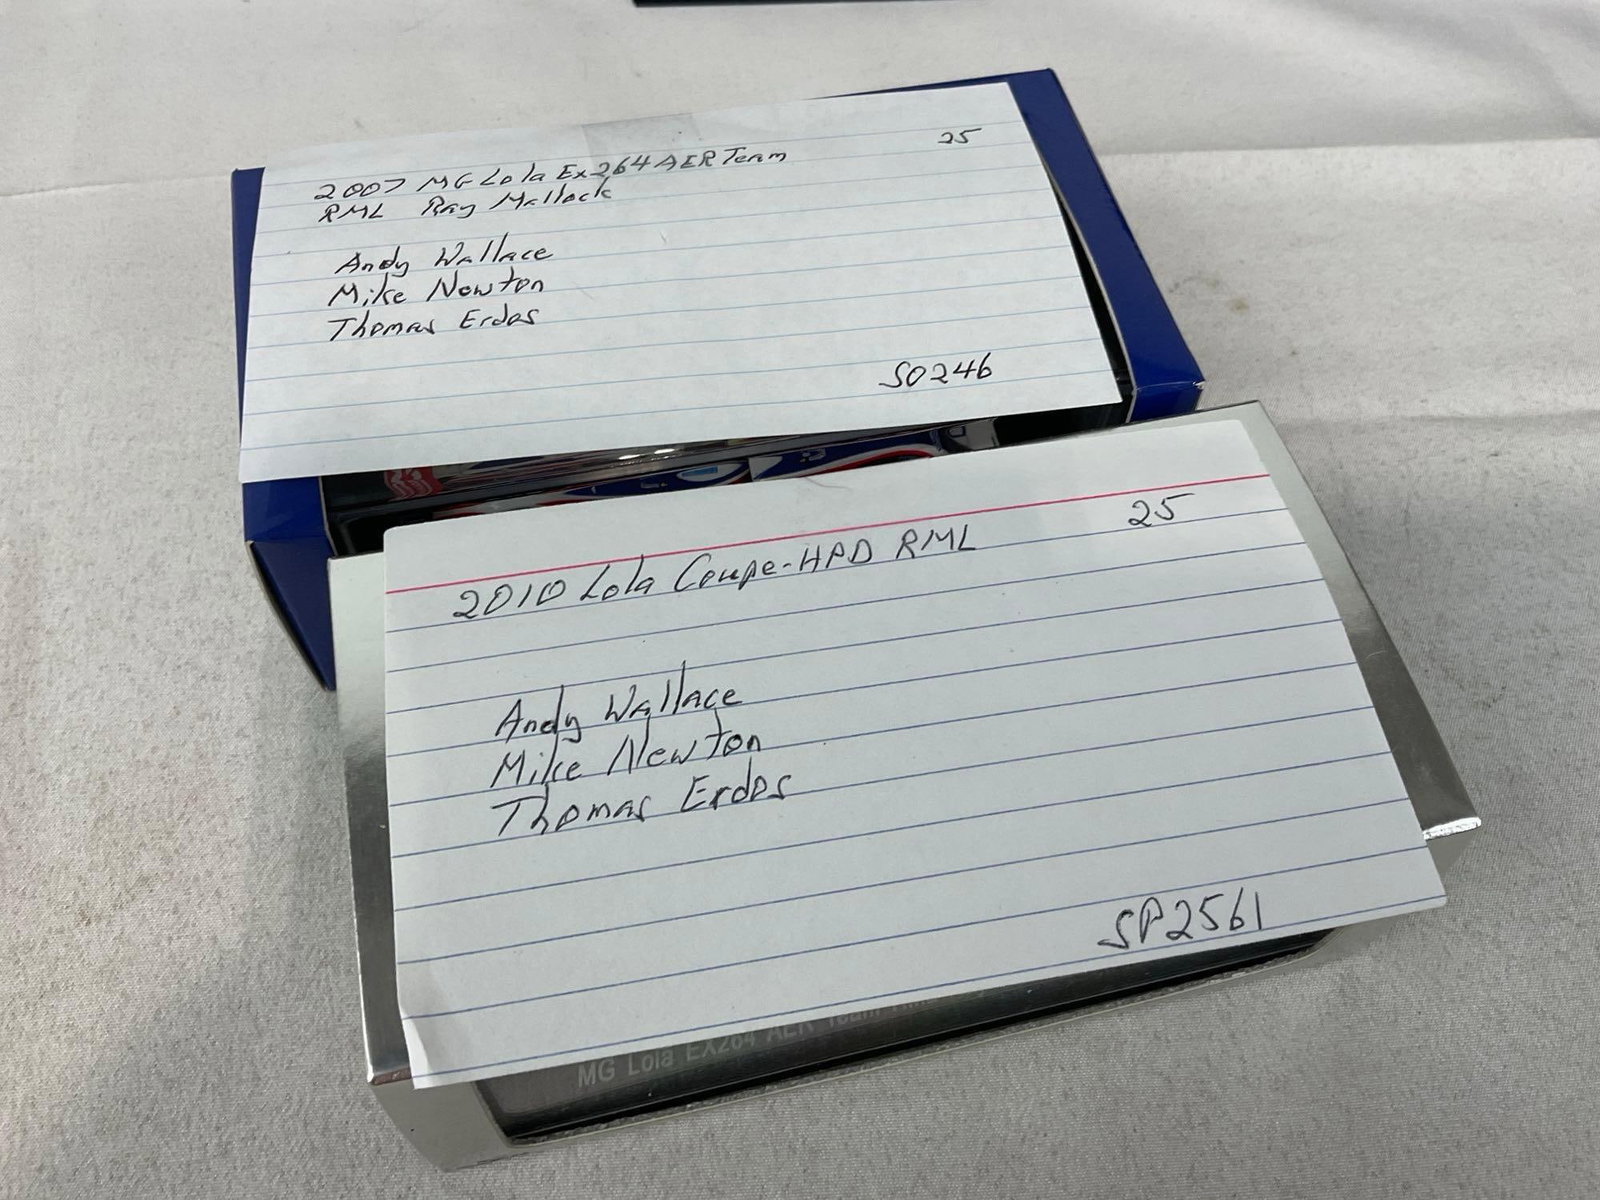 2007 MG Lola Ex264 AER Team 25
RML Ray Mallock
Andy Wallace
Mike Newton
Thomas Erdos
S0246
2010 Lola Coupe-HPD RML 25
Andy Wallace
Mike Newton
Thomas Erdos
SP2561
MG Lola EX264 AER Team